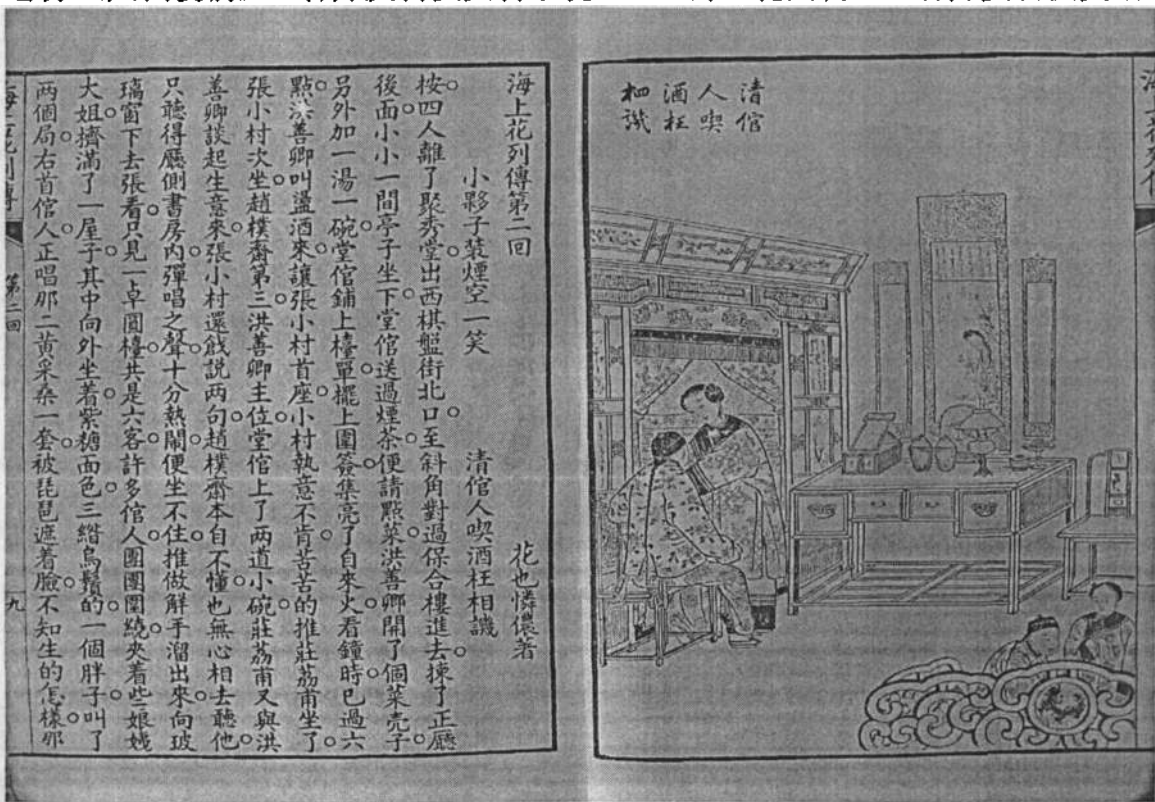 清倌
人喫
酒枉
相譏
海上花列傳第二回
花也憐儂著
小夥子裝煙空一笑
清倌人喫酒枉相譏
按四人離了聚秀堂出西棋盤街北口至斜角對過保合樓進去揀了正廳
後面小小一間亭子坐下堂倌送過煙茶便請點菜洪善卿開了個菜壳子
另外加一湯一碗堂倌鋪上檯單擺上圍簽集亮了自來火看鐘時已過六
點洪善卿叫盪酒來讓張小村首座小村執意不肯苦苦的推莊荔甫坐了
張小村次坐趙樸齋第三洪善卿主位堂倌上了兩道小碗莊荔甫又與洪
善卿談起生意來張小村還戧說兩句趙樸齋本自不懂也無心相去聽他
只聽得廳側書房內彈唱之聲十分熱鬧便坐不住推做解手溜出來向玻
璃窗下去張看只見一桌圓檯共是六客許多倌人團團圍繞夾着些娘姨
大姐擠滿了一屋子其中向外坐着紫糖面色三綹烏鬚的一個胖子叫了
兩個局右首倌人正唱那二黃采桑一套被琵琶遮着臉不知生的怎樣那
第二回
九